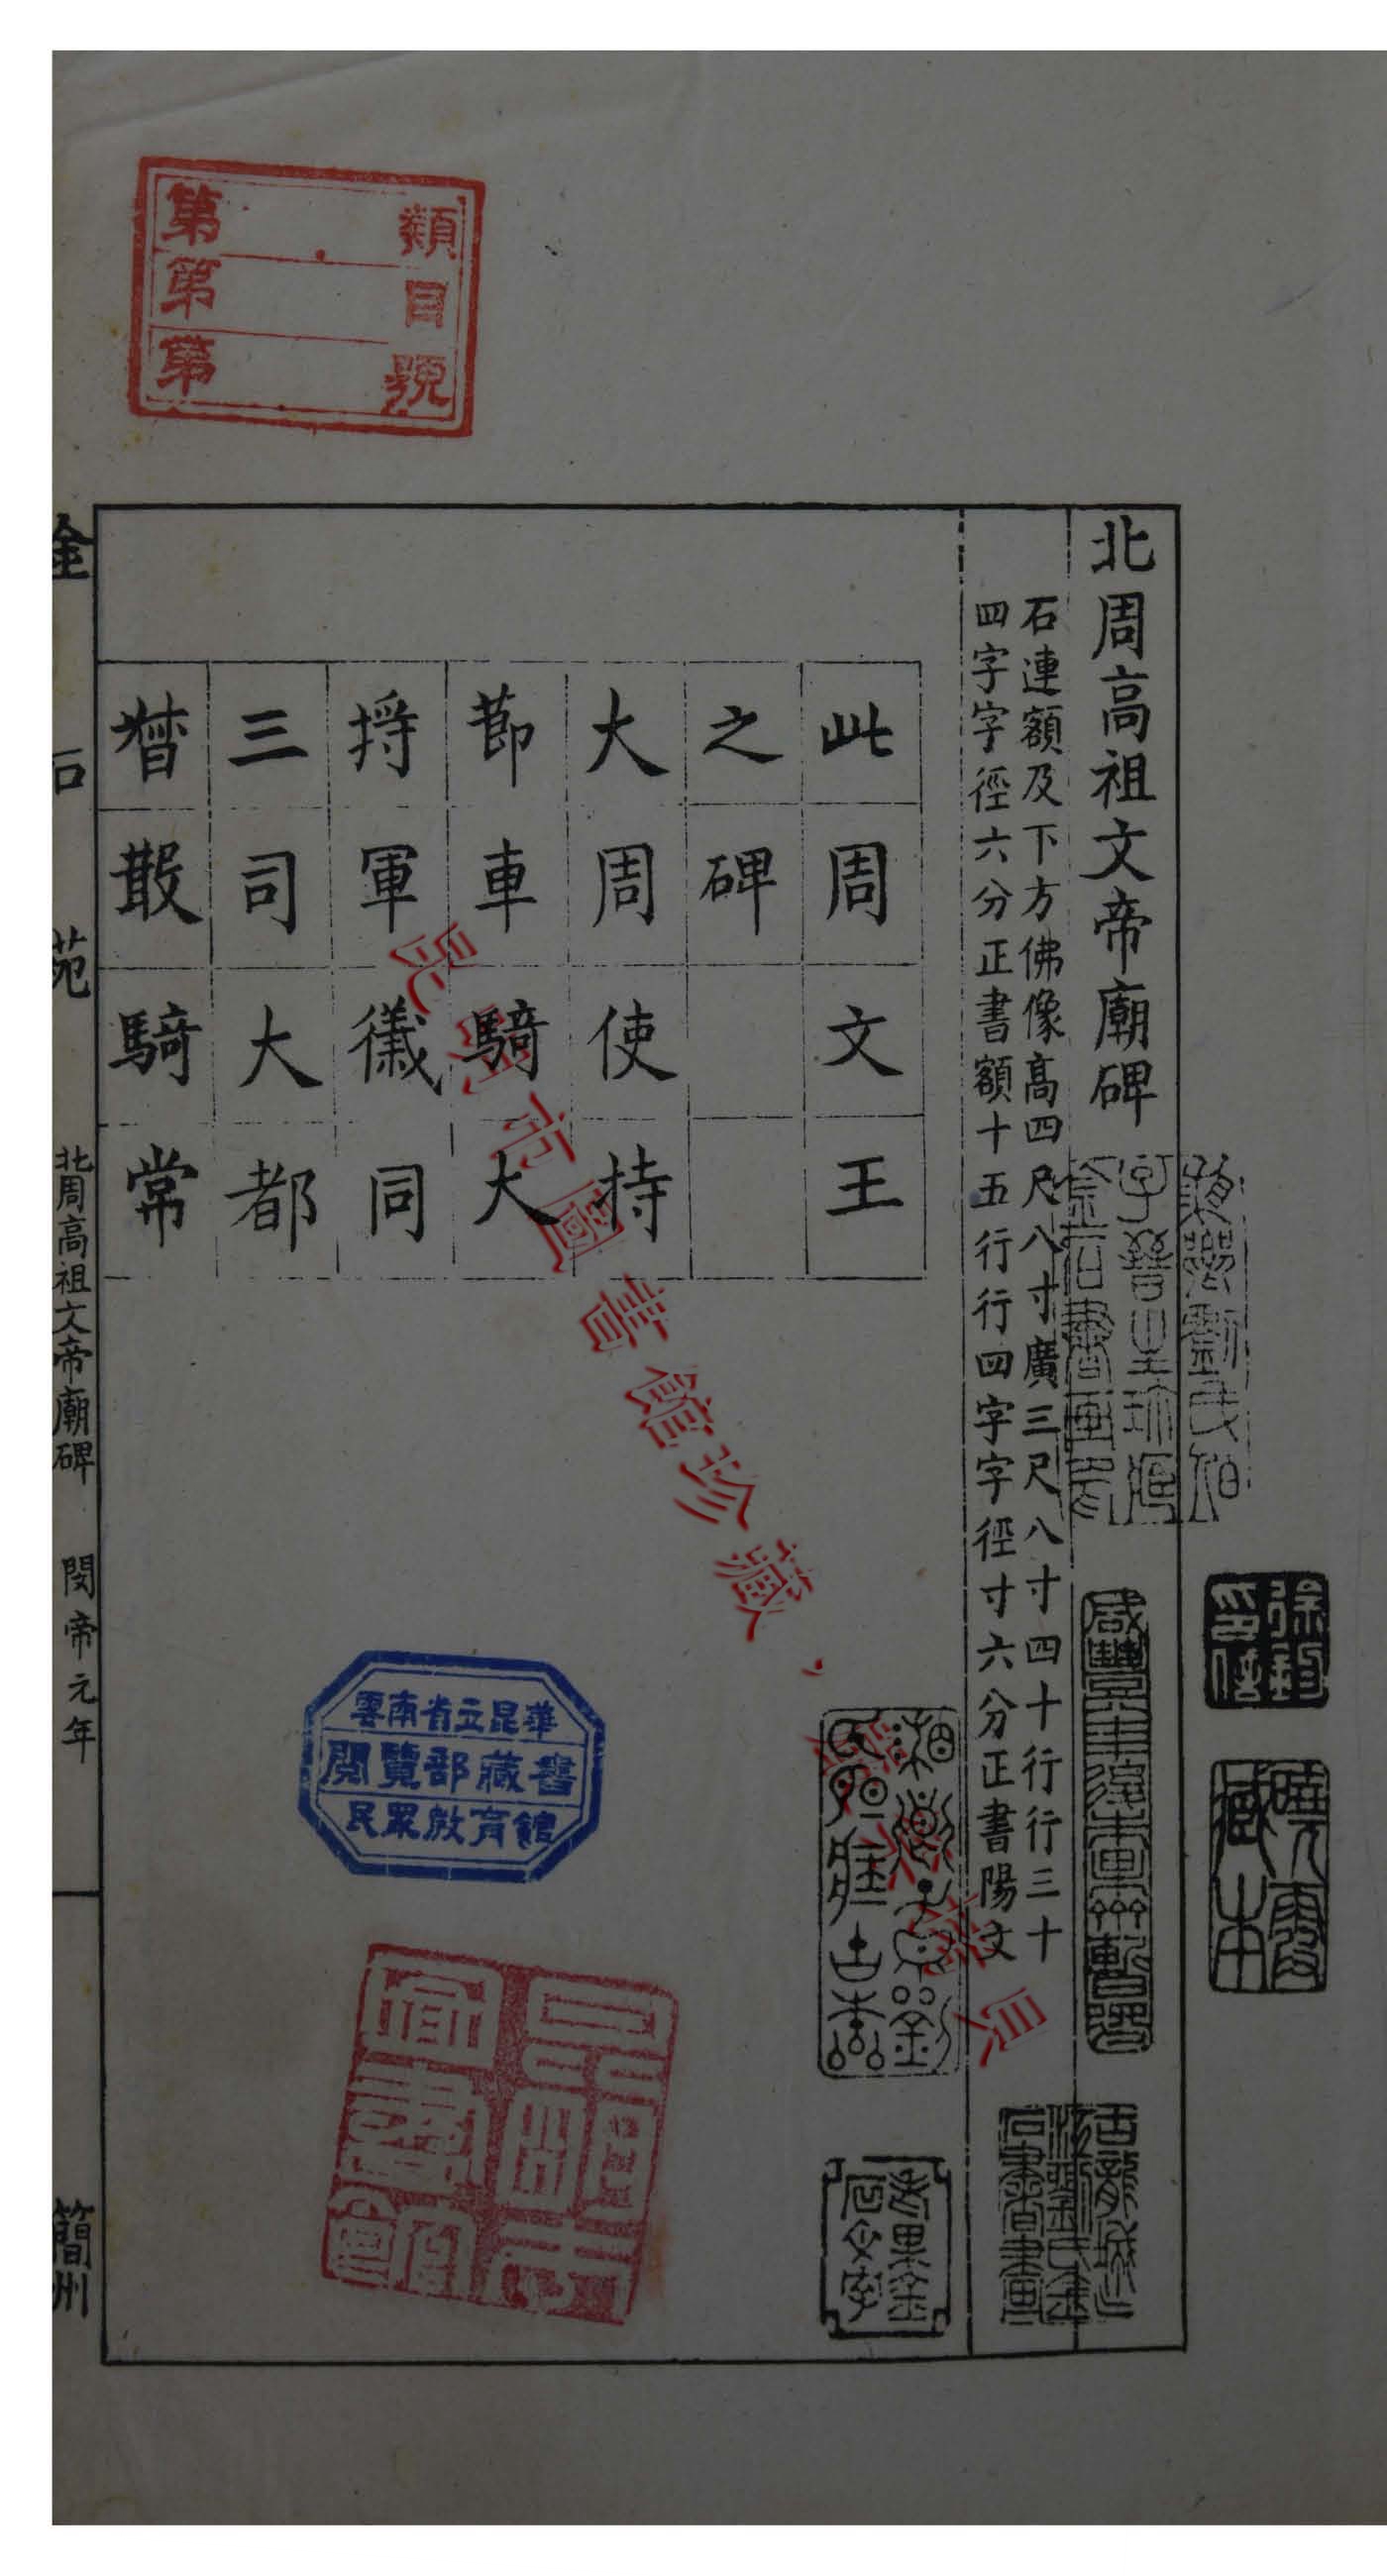 北周高祖文帝廟碑
石連額及下方佛像高四尺八寸廣三尺八寸四十行行三十
四字字徑六分正書額十五行行四字字徑寸六分正書陽文
此周文王
之碑
大周使持
莭車騎大
捋軍儀同
三司大都
散騎常
金石苑
北周高祖文帝廟碑 閔帝元年
簡州
類目號
第第第
雲南省立昆華
閱覽部藏書
民眾教育館
咸豐
曉霞
藏本
昆明市圖書館珍藏,